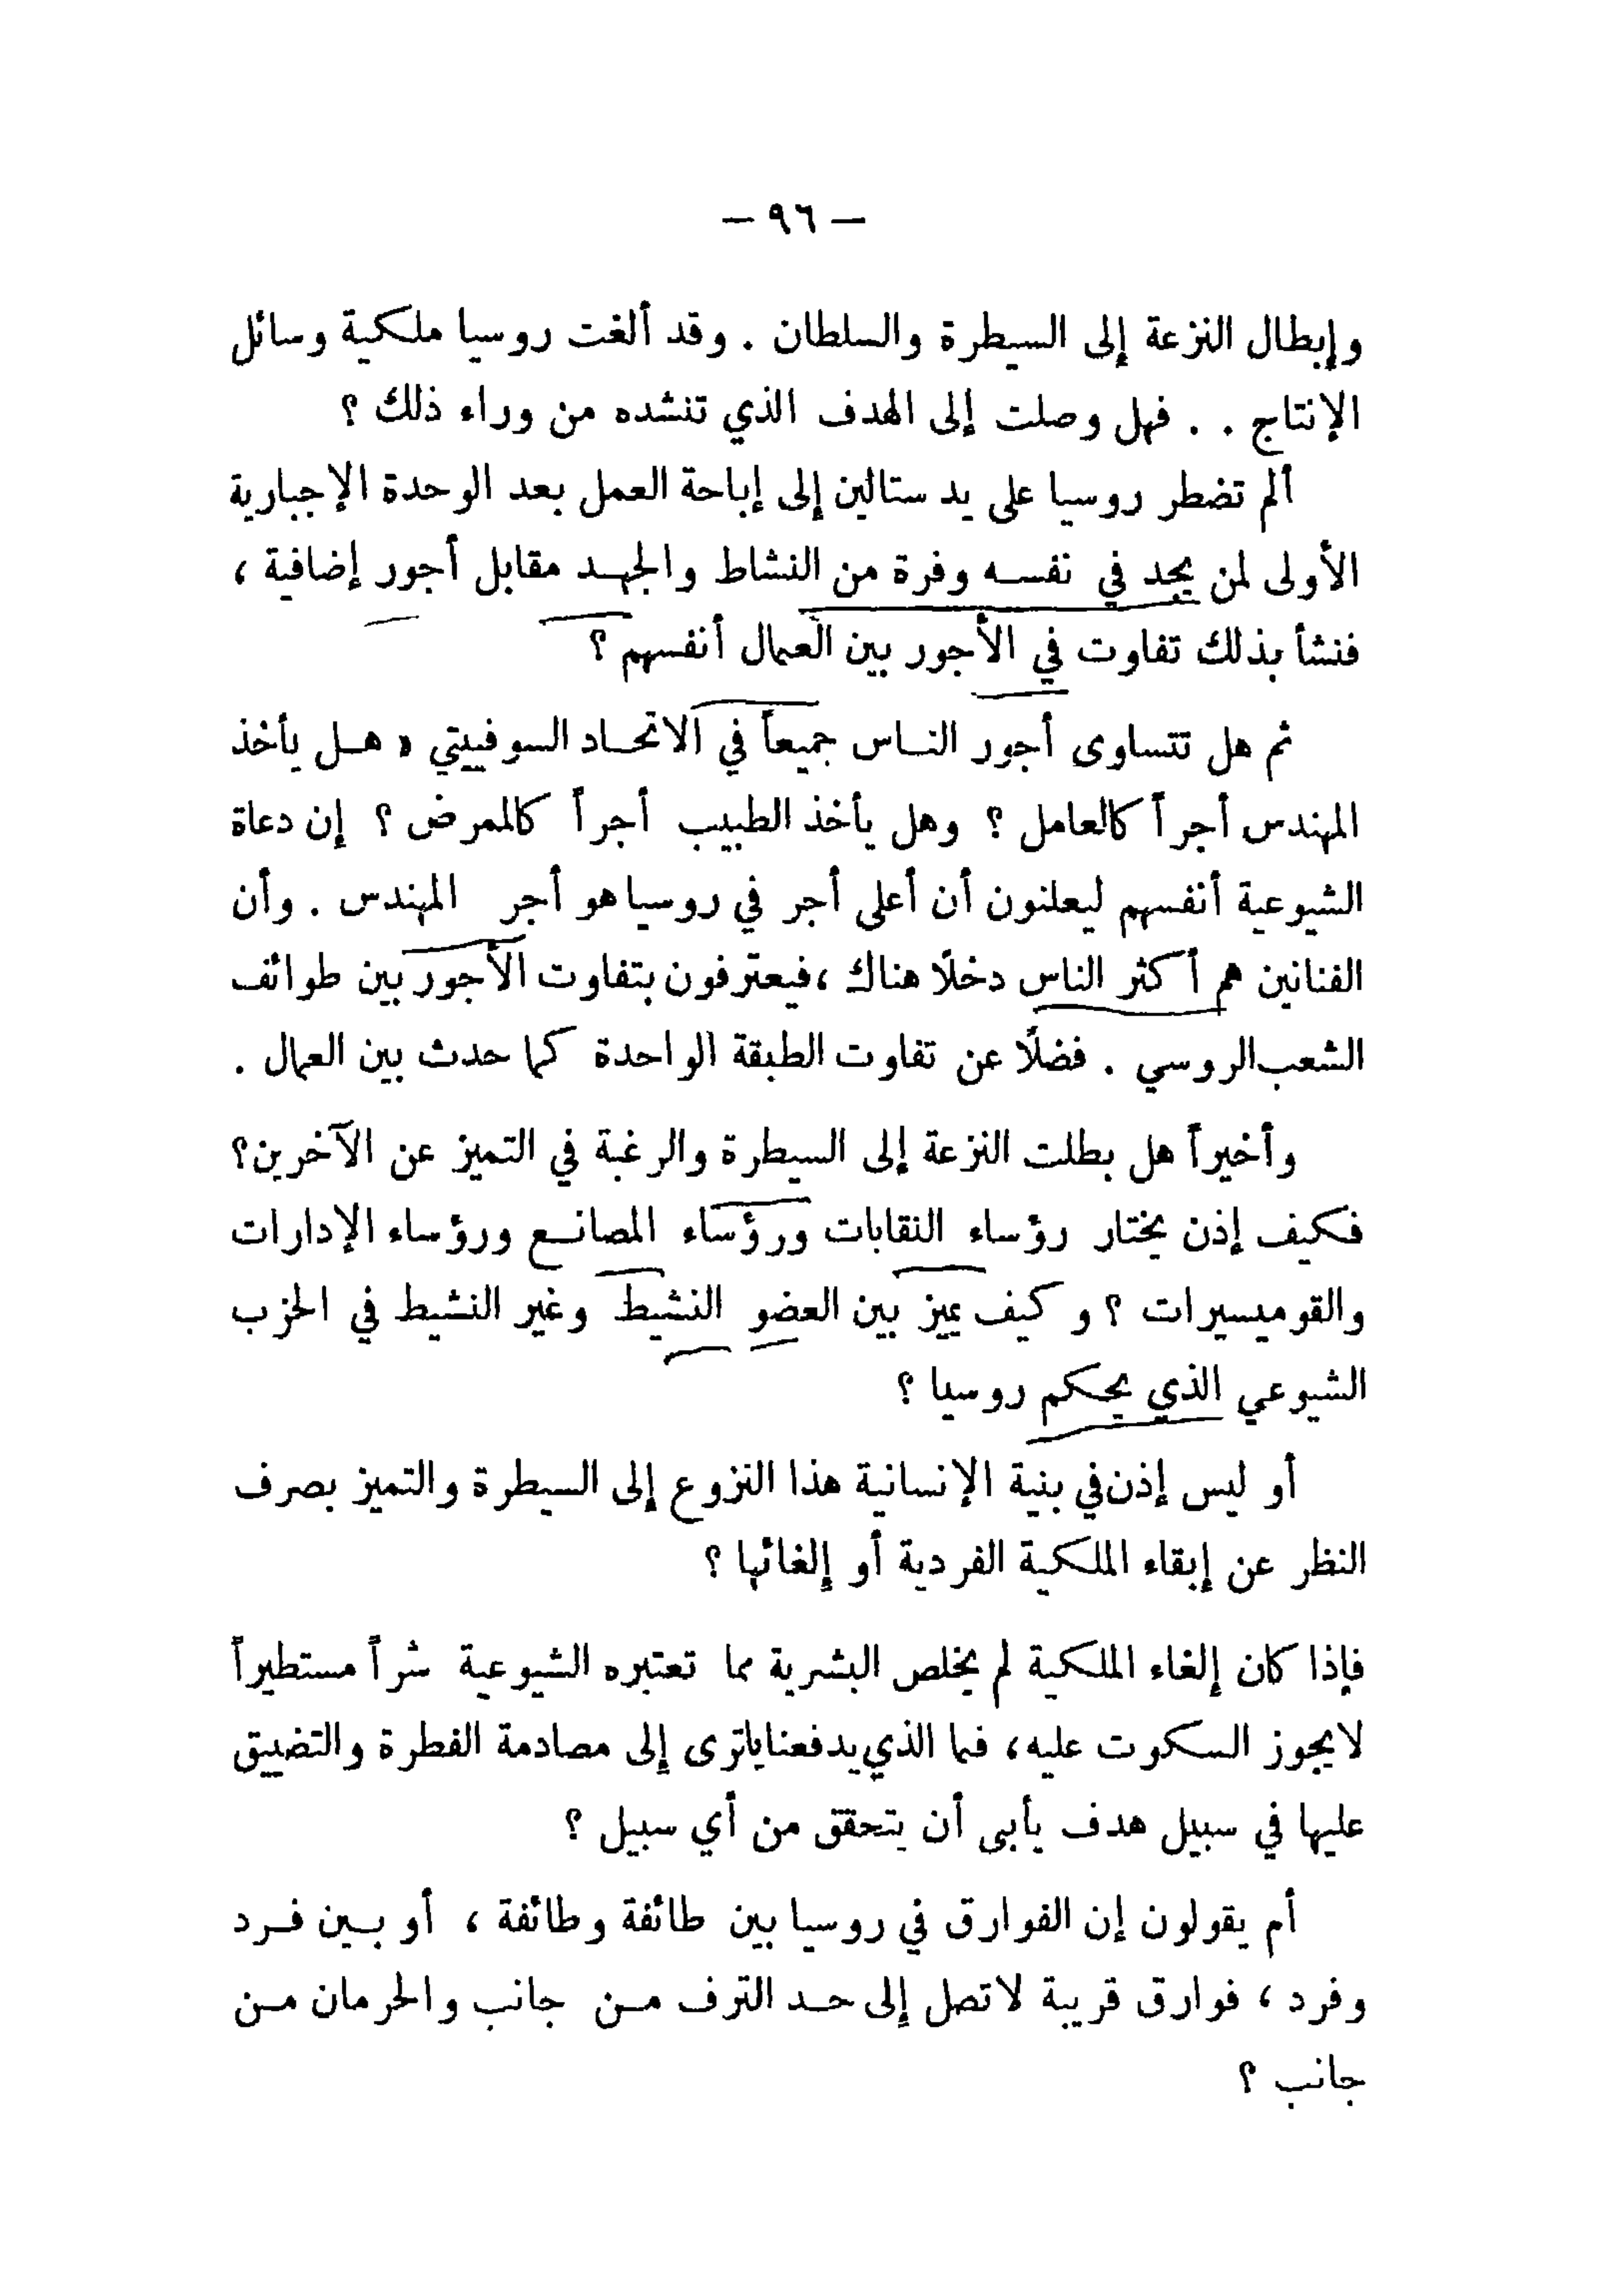 — ٩٦ —
وإبطال النزعة إلى السيطرة والسلطان . وقد ألغت روسيا ملكية وسائل
الإنتاج . . فهل وصلت إلى الهدف الذي تنشده من وراء ذلك ؟
ألم تضطر روسيا على يد ستالين إلى إباحة العمل بعد الوحدة الإجبارية
الأولى لمن يجد في نفسه وفرة من النشاط والجهد مقابل أجور إضافية ،
فنشأ بذلك تفاوت في الأجور بين العمال أنفسهم ؟
ثم هل تتساوى أجور الناس جميعاً في الاتحاد السوفييتي ، هل يأخذ
المهندس أجراً كالعامل ؟ وهل يأخذ الطبيب أجراً كالممرض ؟ إن دعاة
الشيوعية أنفسهم ليعلنون أن أعلى أجر في روسيا هو أجر المهندس . وأن
الفنانين هم أكثر الناس دخلًا هناك ، فيعترفون بتفاوت الأجور بين طوائف
الشعب الروسي . فضلًا عن تفاوت الطبقة الواحدة كما حدث بين العمال .
وأخيراً هل بطلت النزعة إلى السيطرة والرغبة في التميز عن الآخرين؟
فكيف إذن يختار رؤساء النقابات ورؤساء المصانع ورؤساء الإدارات
والقوميسيرات ؟ وكيف يميز بين العضو النشيط وغير النشيط في الحزب
الشيوعي الذي يحكم روسيا ؟
أو ليس إذن في بنية الإنسانية هذا النزوع إلى السيطرة والتميز بصرف
النظر عن إبقاء الملكية الفردية أو إلغائها ؟
فإذا كان إلغاء الملكية لم يخلص البشرية مما تعتبره الشيوعية شراً مستطيراً
لايجوز السكوت عليه، فما الذي يدفعنا ياترى إلى مصادمة الفطرة والتضييق
عليها في سبيل هدف يأبى أن يتحقق من أي سبيل ؟
أم يقولون إن الفوارق في روسيا بين طائفة وطائفة ، أو بين فرد
وفرد ، فوارق قريبة لاتصل إلى حد الترف من جانب والحرمان من
جانب ؟